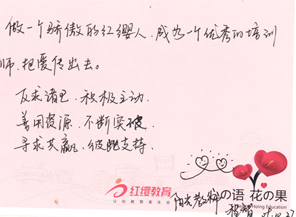 做一个骄傲的红缨人，成为一个优秀的培训
师，把爱传出去。
反求诸己，积极主动
善用资源，不断突破
寻求共赢，彼此支持
红缨教育
の语 花の果